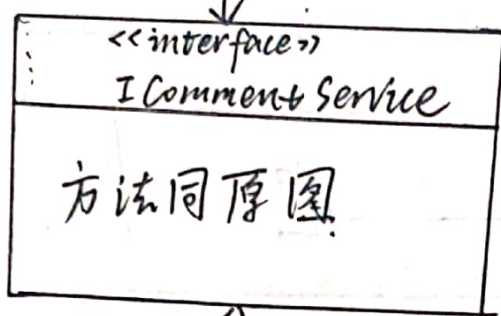 <<interface>>
ICommentService
方法同原图.